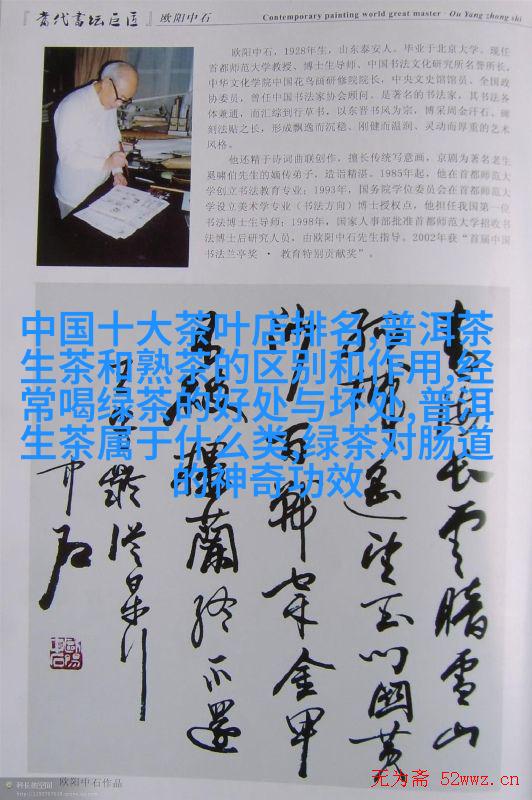 『当代書坛巨匠』欧阳中石
Contemporary painting world great master · Ou Yang zhong shi
欧阳中石,1928年生,山东泰安人。毕业于北京大学。现任
首都师范大学教授、博士生导师、中国书法文化研究所名誉所长,
中华文化学院中国花鸟画研修院院长,中央文史馆馆员、全国政
协委员,曾任中国书法家协会顾问。是著名的书法家,其书法各
体兼通,而汇综到行草书,以东晋书风为宗,博采周金汗石、碑
刻法贴之长,形成飘逸而沉稳、刚健而温润、灵动而厚重的艺术
风格。
他还精于诗词曲联创作,擅长传统写意画,京剧为著名老生
奚啸伯先生的嫡传弟子,造诣精湛。1985年起,他在首都师范大
学创立书法教育专业;1993年,国务院学位委员会在首都师范大
学设立美术学专业(书法方向)博士授权点,他担任我国第一位
书法博士生导师;1998年,国家人事部批准首都师范大学招收书
法博士后研究人员,由欧阳中石先生指导。2002年获“首届中国
书法兰亭奖 · 教育特别贡献奖”。
中国十大茶叶店排名,普洱茶
生茶和熟茶的区别和作用,经
常喝绿茶的好处与坏处,普洱
生茶属于什么类,绿茶对肠道
的神奇功效
青海長雲暗雪山
孤城遥望玉门關黄
沙百戰穿金甲
不破樓蘭终不還
王昌龄從軍行
中石
欧阳中石作品
无为斋 52wwz.cn